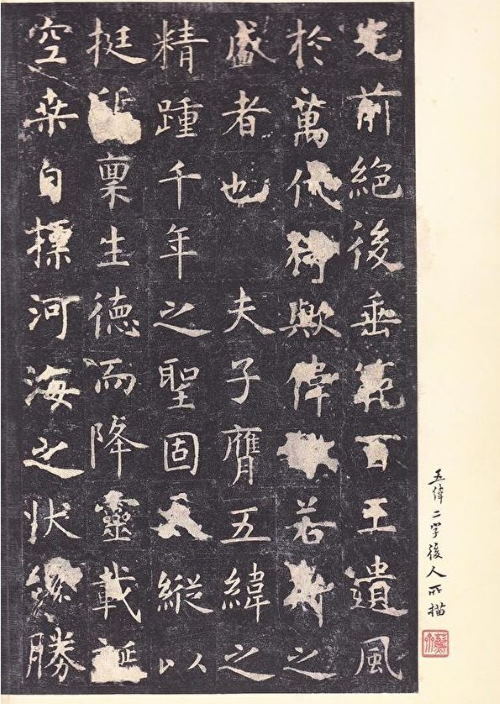 光前絕後垂範百王遺風
於萬代猗歟偉若斯之
盛者也 夫子膺五緯之
精踵千年之聖固天縱以
挺稟生德而降靈載誕
空桒自標河海之狀纔勝
五緯二字後人所描